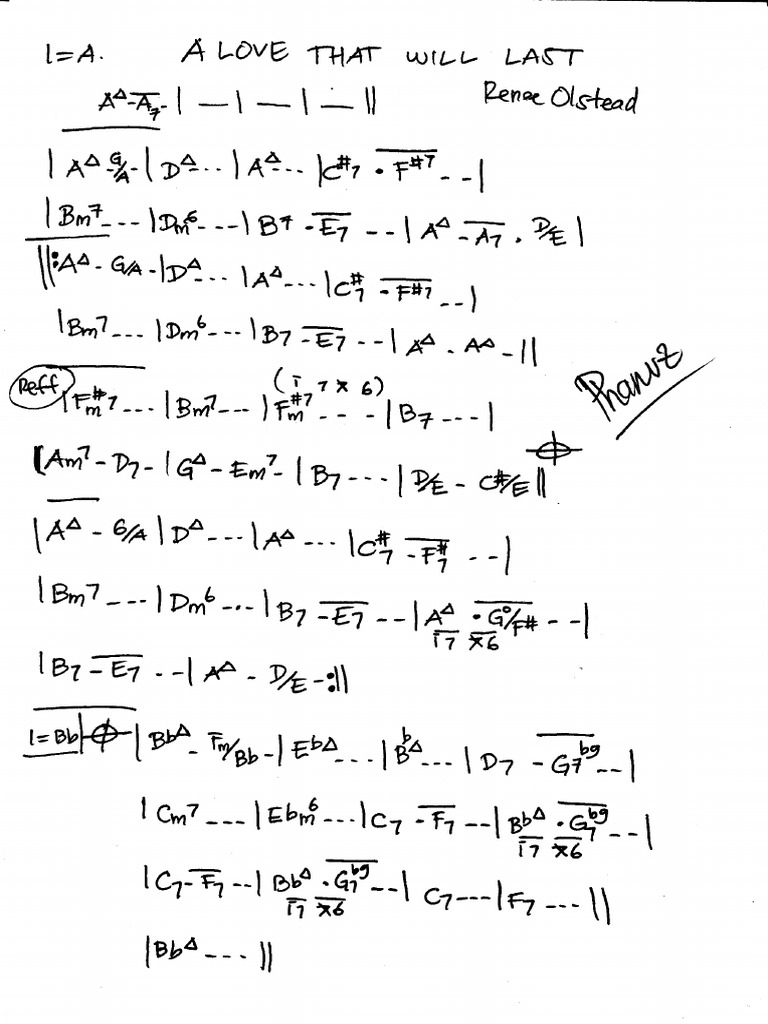 1=A. A LOVE THAT WILL LAST
Renee Olstead
AΔ-A7-| — | — | — ||
| AΔ G/A-| DΔ... | AΔ... |C#7 . F#7 - - |
| Bm7 ... |Dm6 ... | B7 - E7 - - | AΔ - A7 . D/E |
||: AΔ - G/A -|DΔ... | AΔ... |C#7 - F#7 - - |
|Bm7 ... |Dm6 ... |B7 - E7 - - | AΔ - AΔ - ||
(1 7 7 6)
Reff |F#m7 ... |Bm7 ... |F#m7 - - - | B7 ... |
Phanuz
|Am7 - D7 - | GΔ - Em7 - | B7 .... | D/E - C#/E ||
| AΔ - G/A | DΔ ... | AΔ ... |C#7 - F#7 - - |
| Bm7 ... | Dm6 ... | B7 - E7 - - | AΔ . G°/F# - - |
17 76
| B7 - E7 - - | AΔ - D/E - :||
1=Bb | BbΔ - Fm/Bb - | EbΔ .... | BbΔ .... | D7 - G7b9 - - |
| Cm7 ... | Ebm6 ... | C7 - F7 - - | BbΔ . G7b9 - - |
17 76
| C7 - F7 - - | BbΔ . G7b9 - - | C7 ... | F7 .... ||
17 76
| BbΔ .... ||